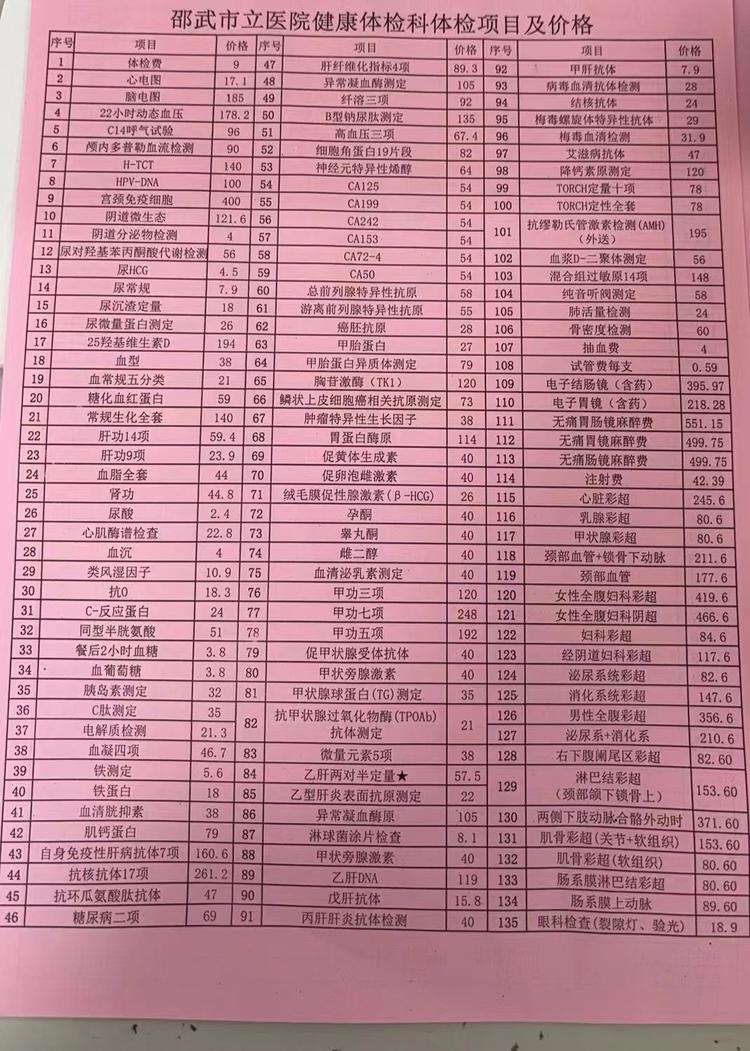 邵武市立医院健康体检科体检项目及价格
序号 项目 价格
1 体检费 9
2 心电图 17.1
3 脑电图 185
4 22小时动态血压 178.2
5 C14呼气试验 96
6 颅内多普勒血流检测 90
7 H-TCT 140
8 HPV-DNA 100
9 宫颈免疫细胞 400
10 阴道微生态 121.6
11 阴道分泌物检测 4
12 尿对羟基苯丙酮酸代谢检测 56
13 尿HCG 4.5
14 尿常规 7.9
15 尿沉渣定量 18
16 尿微量蛋白测定 26
17 25羟基维生素D 194
18 血型 38
19 血常规五分类 21
20 糖化血红蛋白 59
21 常规生化全套 140
22 肝功14项 59.4
23 肝功9项 23.9
24 血脂全套 44
25 肾功 44.8
26 尿酸 2.4
27 心肌酶谱检查 22.8
28 血沉 4
29 类风湿因子 10.9
30 抗O 18.3
31 C-反应蛋白 24
32 同型半胱氨酸 51
33 餐后2小时血糖 3.8
34 血葡萄糖 3.8
35 胰岛素测定 32
36 C肽测定 35
37 电解质检测 21.3
38 血凝四项 46.7
39 铁测定 5.6
40 铁蛋白 18
41 血清胱抑素 38
42 肌钙蛋白 79
43 自身免疫性肝病抗体7项 160.6
44 抗核抗体17项 261.2
45 抗环瓜氨酸肽抗体 47
46 糖尿病二项 69
序号 项目 价格
47 肝纤维化指标4项 89.3
48 异常凝血酶测定 105
49 纤溶三项 92
50 B型钠尿肽测定 135
51 高血压三项 67.4
52 细胞角蛋白19片段 82
53 神经元特异性烯醇 64
54 CA125 54
55 CA199 54
56 CA242 54
57 CA153 54
58 CA72-4 54
59 CA50 54
60 总前列腺特异性抗原 58
61 游离前列腺特异性抗原 55
62 癌胚抗原 28
63 甲胎蛋白 27
64 甲胎蛋白异质体测定 79
65 胸苷激酶（TK1） 120
66 鳞状上皮细胞癌相关抗原测定 73
67 肿瘤特异性生长因子 38
68 胃蛋白酶原 114
69 促黄体生成素 40
70 促卵泡雌激素 40
71 绒毛膜促性腺激素(β-HCG) 26
72 孕酮 40
73 睾丸酮 40
74 雌二醇 40
75 血清泌乳素测定 40
76 甲功三项 120
77 甲功七项 248
78 甲功五项 192
79 促甲状腺受体抗体 40
80 甲状旁腺激素 40
81 甲状腺球蛋白(TG)测定 35
82 抗甲状腺过氧化物酶(TPOAb)
抗体测定 21
83 微量元素5项 38
84 乙肝两对半定量★ 57.5
85 乙型肝炎表面抗原测定 22
86 异常凝血酶原 105
87 淋球菌涂片检查 8.1
88 甲状旁腺激素 40
89 乙肝DNA 119
90 戊肝抗体 15.8
91 丙肝肝炎抗体检测 40
序号 项目 价格
92 甲肝抗体 7.9
93 病毒血清抗体检测 28
94 结核抗体 24
95 梅毒螺旋体特异性抗体 29
96 梅毒血清检测 31.9
97 艾滋病抗体 47
98 降钙素原测定 120
99 TORCH定量十项 78
100 TORCH定性全套 78
101 抗缪勒氏管激素检测(AMH)
(外送) 195
102 血浆D-二聚体测定 56
103 混合组过敏原14项 148
104 纯音听阀测定 58
105 肺活量检测 24
106 骨密度检测 60
107 抽血费 4
108 试管费每支 0.59
109 电子结肠镜（含药） 395.97
110 电子胃镜（含药） 218.28
111 无痛胃肠镜麻醉费 551.15
112 无痛胃镜麻醉费 499.75
113 无痛肠镜麻醉费 499.75
114 注射费 42.39
115 心脏彩超 245.6
116 乳腺彩超 80.6
117 甲状腺彩超 80.6
118 颈部血管+锁骨下动脉 211.6
119 颈部血管 177.6
120 女性全腹妇科彩超 419.6
121 女性全腹妇科阴超 466.6
122 妇科彩超 84.6
123 经阴道妇科彩超 117.6
124 泌尿系统彩超 82.6
125 消化系统彩超 147.6
126 男性全腹彩超 356.6
127 泌尿系+消化系 210.6
128 右下腹阑尾区彩超 82.60
129 淋巴结彩超
(颈部颌下锁骨上) 153.60
130 两侧下肢动脉合髂外动时 371.60
131 肌骨彩超(关节+软组织) 153.60
132 肌骨彩超(软组织) 80.60
133 肠系膜淋巴结彩超 80.60
134 肠系膜上动脉 89.60
135 眼科检查(裂隙灯、验光) 18.9